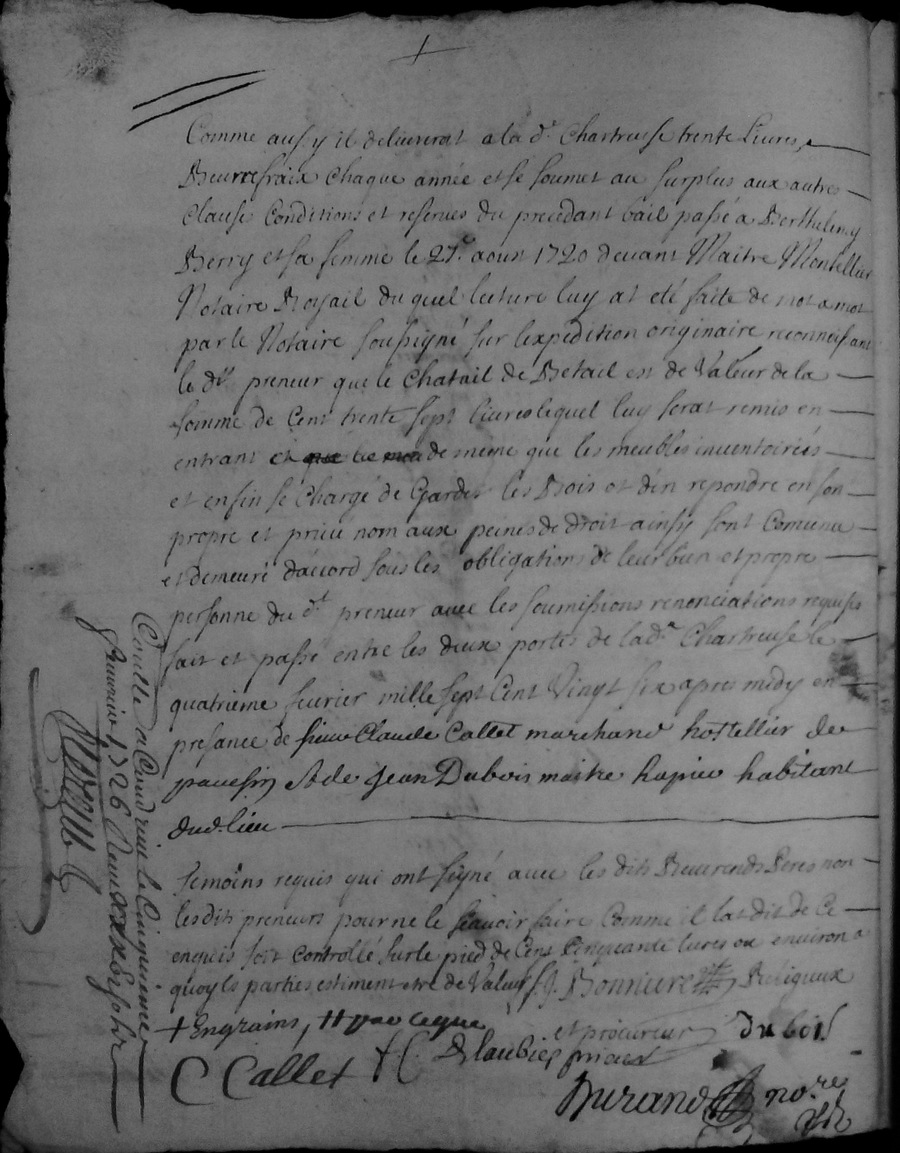 Comme aussy il delivrerat a la d.t Chartreusse trente Livres
Beurre fraix Chaque année et se soumet au surplus aux autres
Clause Conditions et reserves du precedant bail passé a Berthelemy
Berry et sa femme le 27.e aoust 1720 devant Maitre Montellier
Notaire Royail du quel lecture luy at eté faite de mot a mot
par le Notaire soussigné sur lexpedition originaire reconnoissant
le dt. preneur que le Chatail de Betail est de Valeur de la
somme de Cent trente sept livres lequel luy serat remis en
entrant et de meme que les meubles inventoiriés
et enfin se Chargé de Garder les Bois et den repondre en son
propre et privé nom aux peines de droit ainsy sont Convenu
et demeuré dacord sous les obligations de leur bien et propre
personne du d.t preneur avec les soumissions renonciations requises
fait et passé entre les deux portes de lad.e Chartreuse le
quatrieme fevrier mille sept Cent Vingt six apres midy en
presance de sieur Claude Callet marchand hostellier de
pavesin et de Jean Dubois maitre habitant
dud. lieu
temoins requis qui ont signé avec les dits Reverends Peres non
lesdits preneurs pour ne le sçavoir faire Comme il lat dit de Ce
enquis soit controllé sur le pied de Cent Cinquante livres ou environ a
quoy ls parties estiment etre de Valeur f. J. Bonniere Religieux
+ En grains, et procureur du bois
C Callet f C prieur
Durand no.re
Controllé a Condrieu le Cinquieme
fevrier 1726 Receu